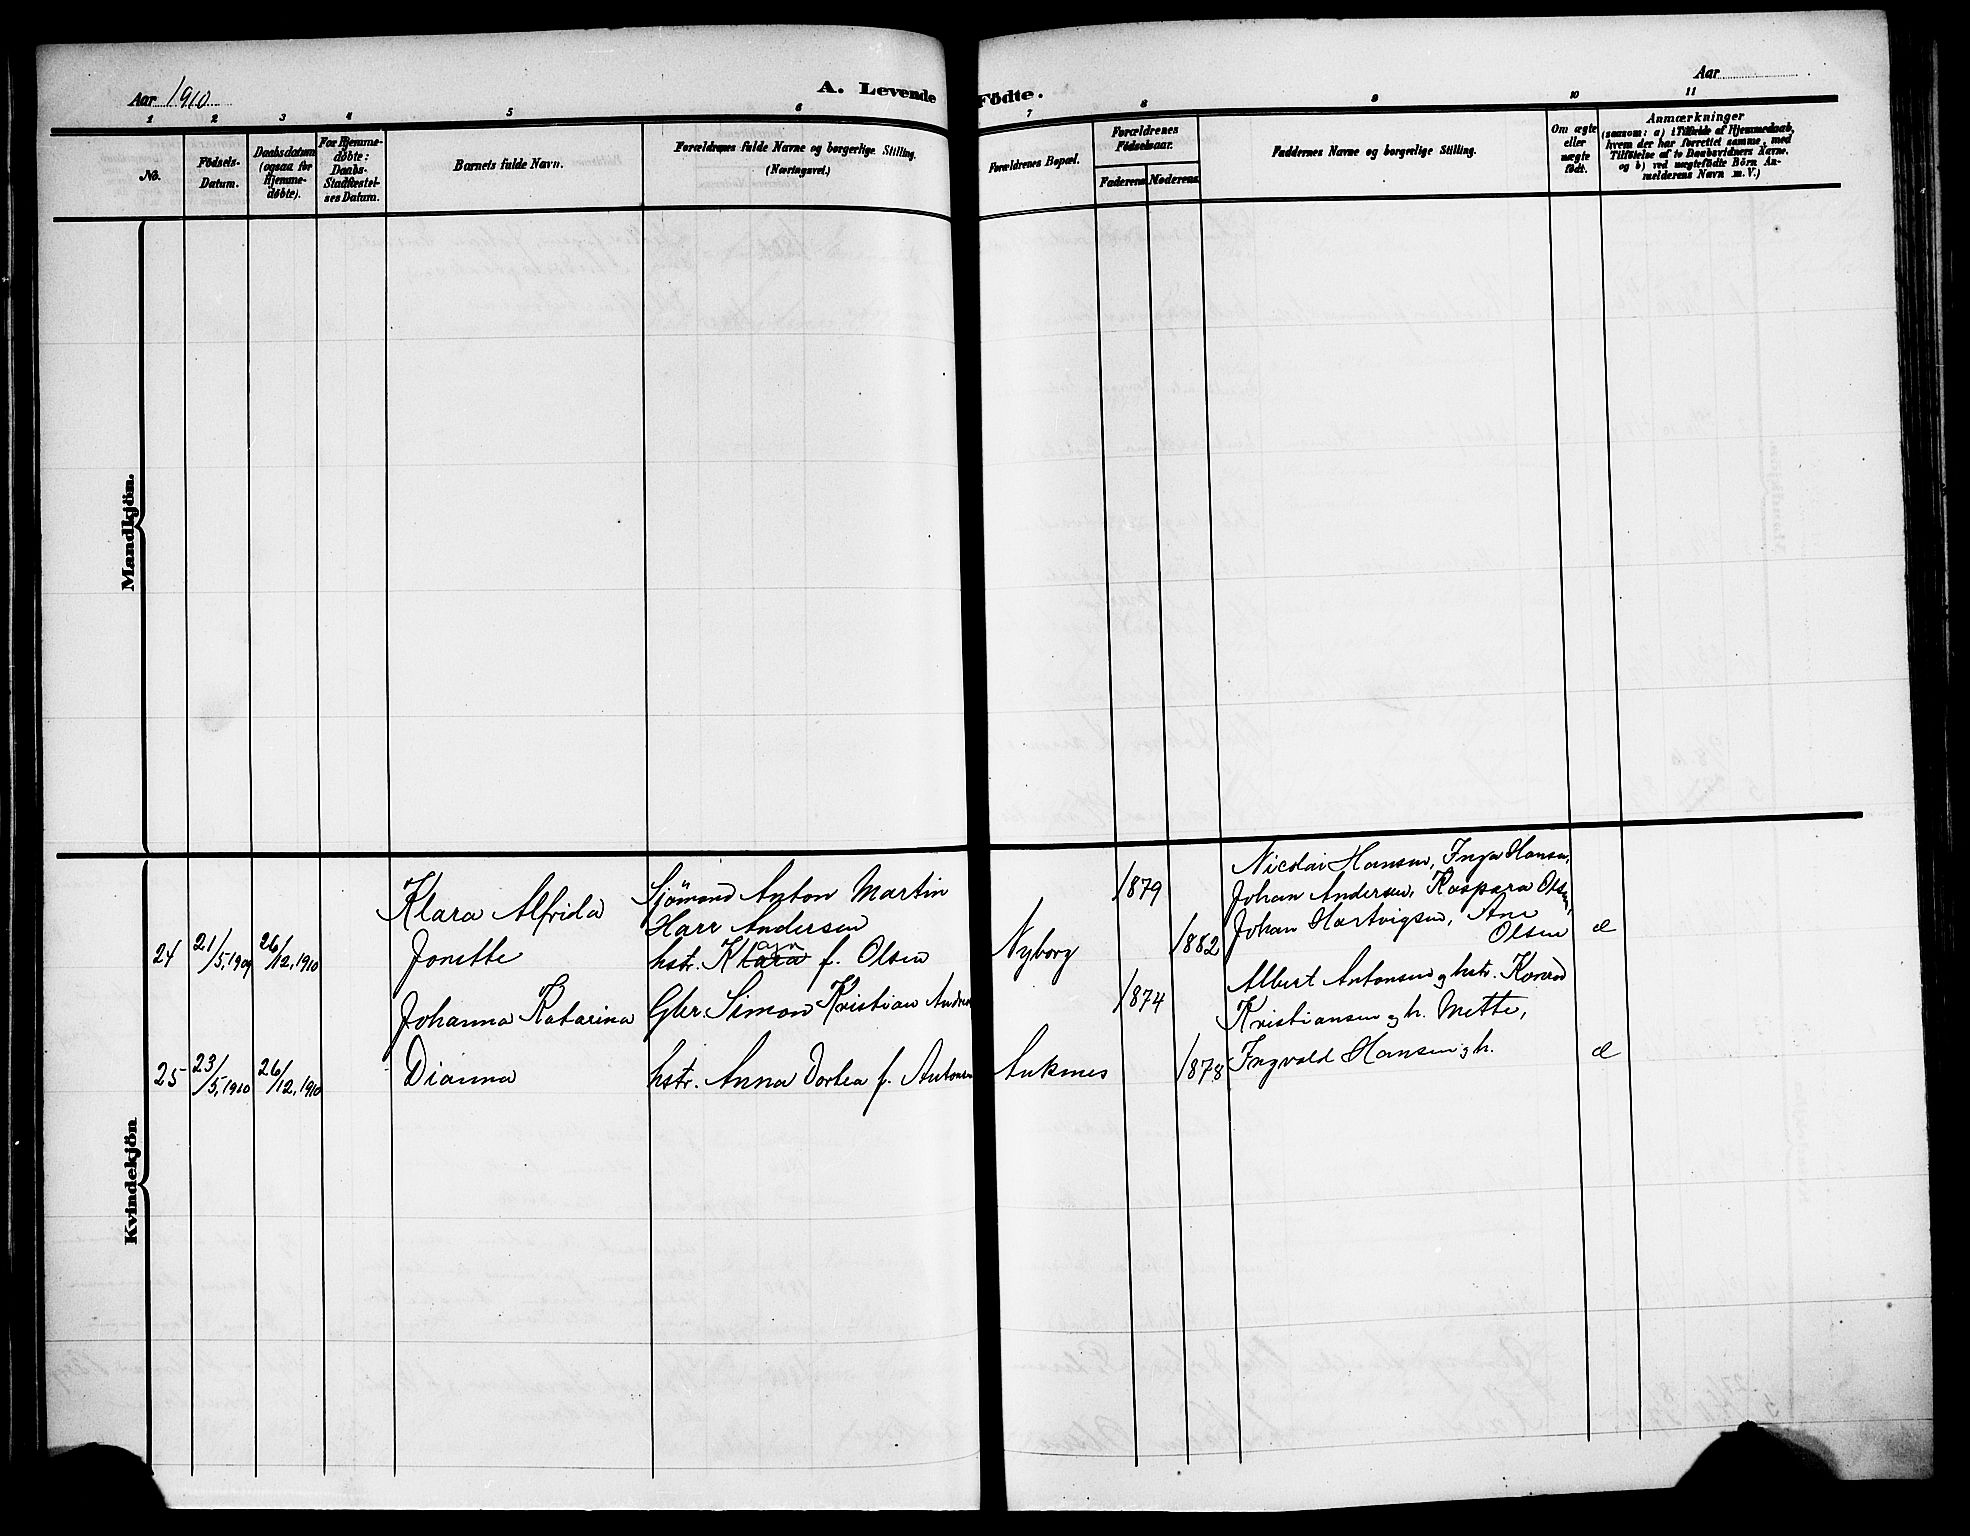 Aar 1910
A. Levende Födte.
Aar
1 2 3 4 5 6 7 8 9 10 11
No.
Födsels-Datum.
Daabsdatum (ogsaa for Hjemmedøbte).
For Hjemmedøbte: Daabs-Stadfæstelses Datum.
Barnets fulde Navn.
Forældrenes fulde Navne og borgerlige Stilling. (Næringsvei.)
Forældrenes Bopæl.
Forældrenes Fødselsaar.
Faderens Moderens
Faddernes Navne og borgerlige Stilling.
Om ægte eller uægte født.
Anmærkninger
(saasom: a) i Tilfælde af Hjemmedaab, hvem der har forrettet samme, med Tilføielse af to Daabsvidners Navne, og b) ved uægtefödte Börn Anmelderens Navn m. V.)
Mandkjön.
Kvindekjön
24 21/5, 1909 26/12, 1910
Klara Alfrida
Jonette
Sjømand Anton Martin
Harr Andersen
hstr. Klara f. Olsen
Nyborg
1879
1882
Nicolai Hansen, Inga Hansen,
Johan Andersen, Kaspara Olsen,
Johan Hartvigsen, Ane
Olsen
æ
25 23/5, 1910 26/12, 1910
Johanna Katarina
Dianna
Gbr. Simon Kristian
hstr. Anna Dortea f. Antonsen
Auknes
1874
1878
Albert Antonsen og hstr. Konrad
Kristiansen og h. Mette,
Ingvald Hansen og h.
æ